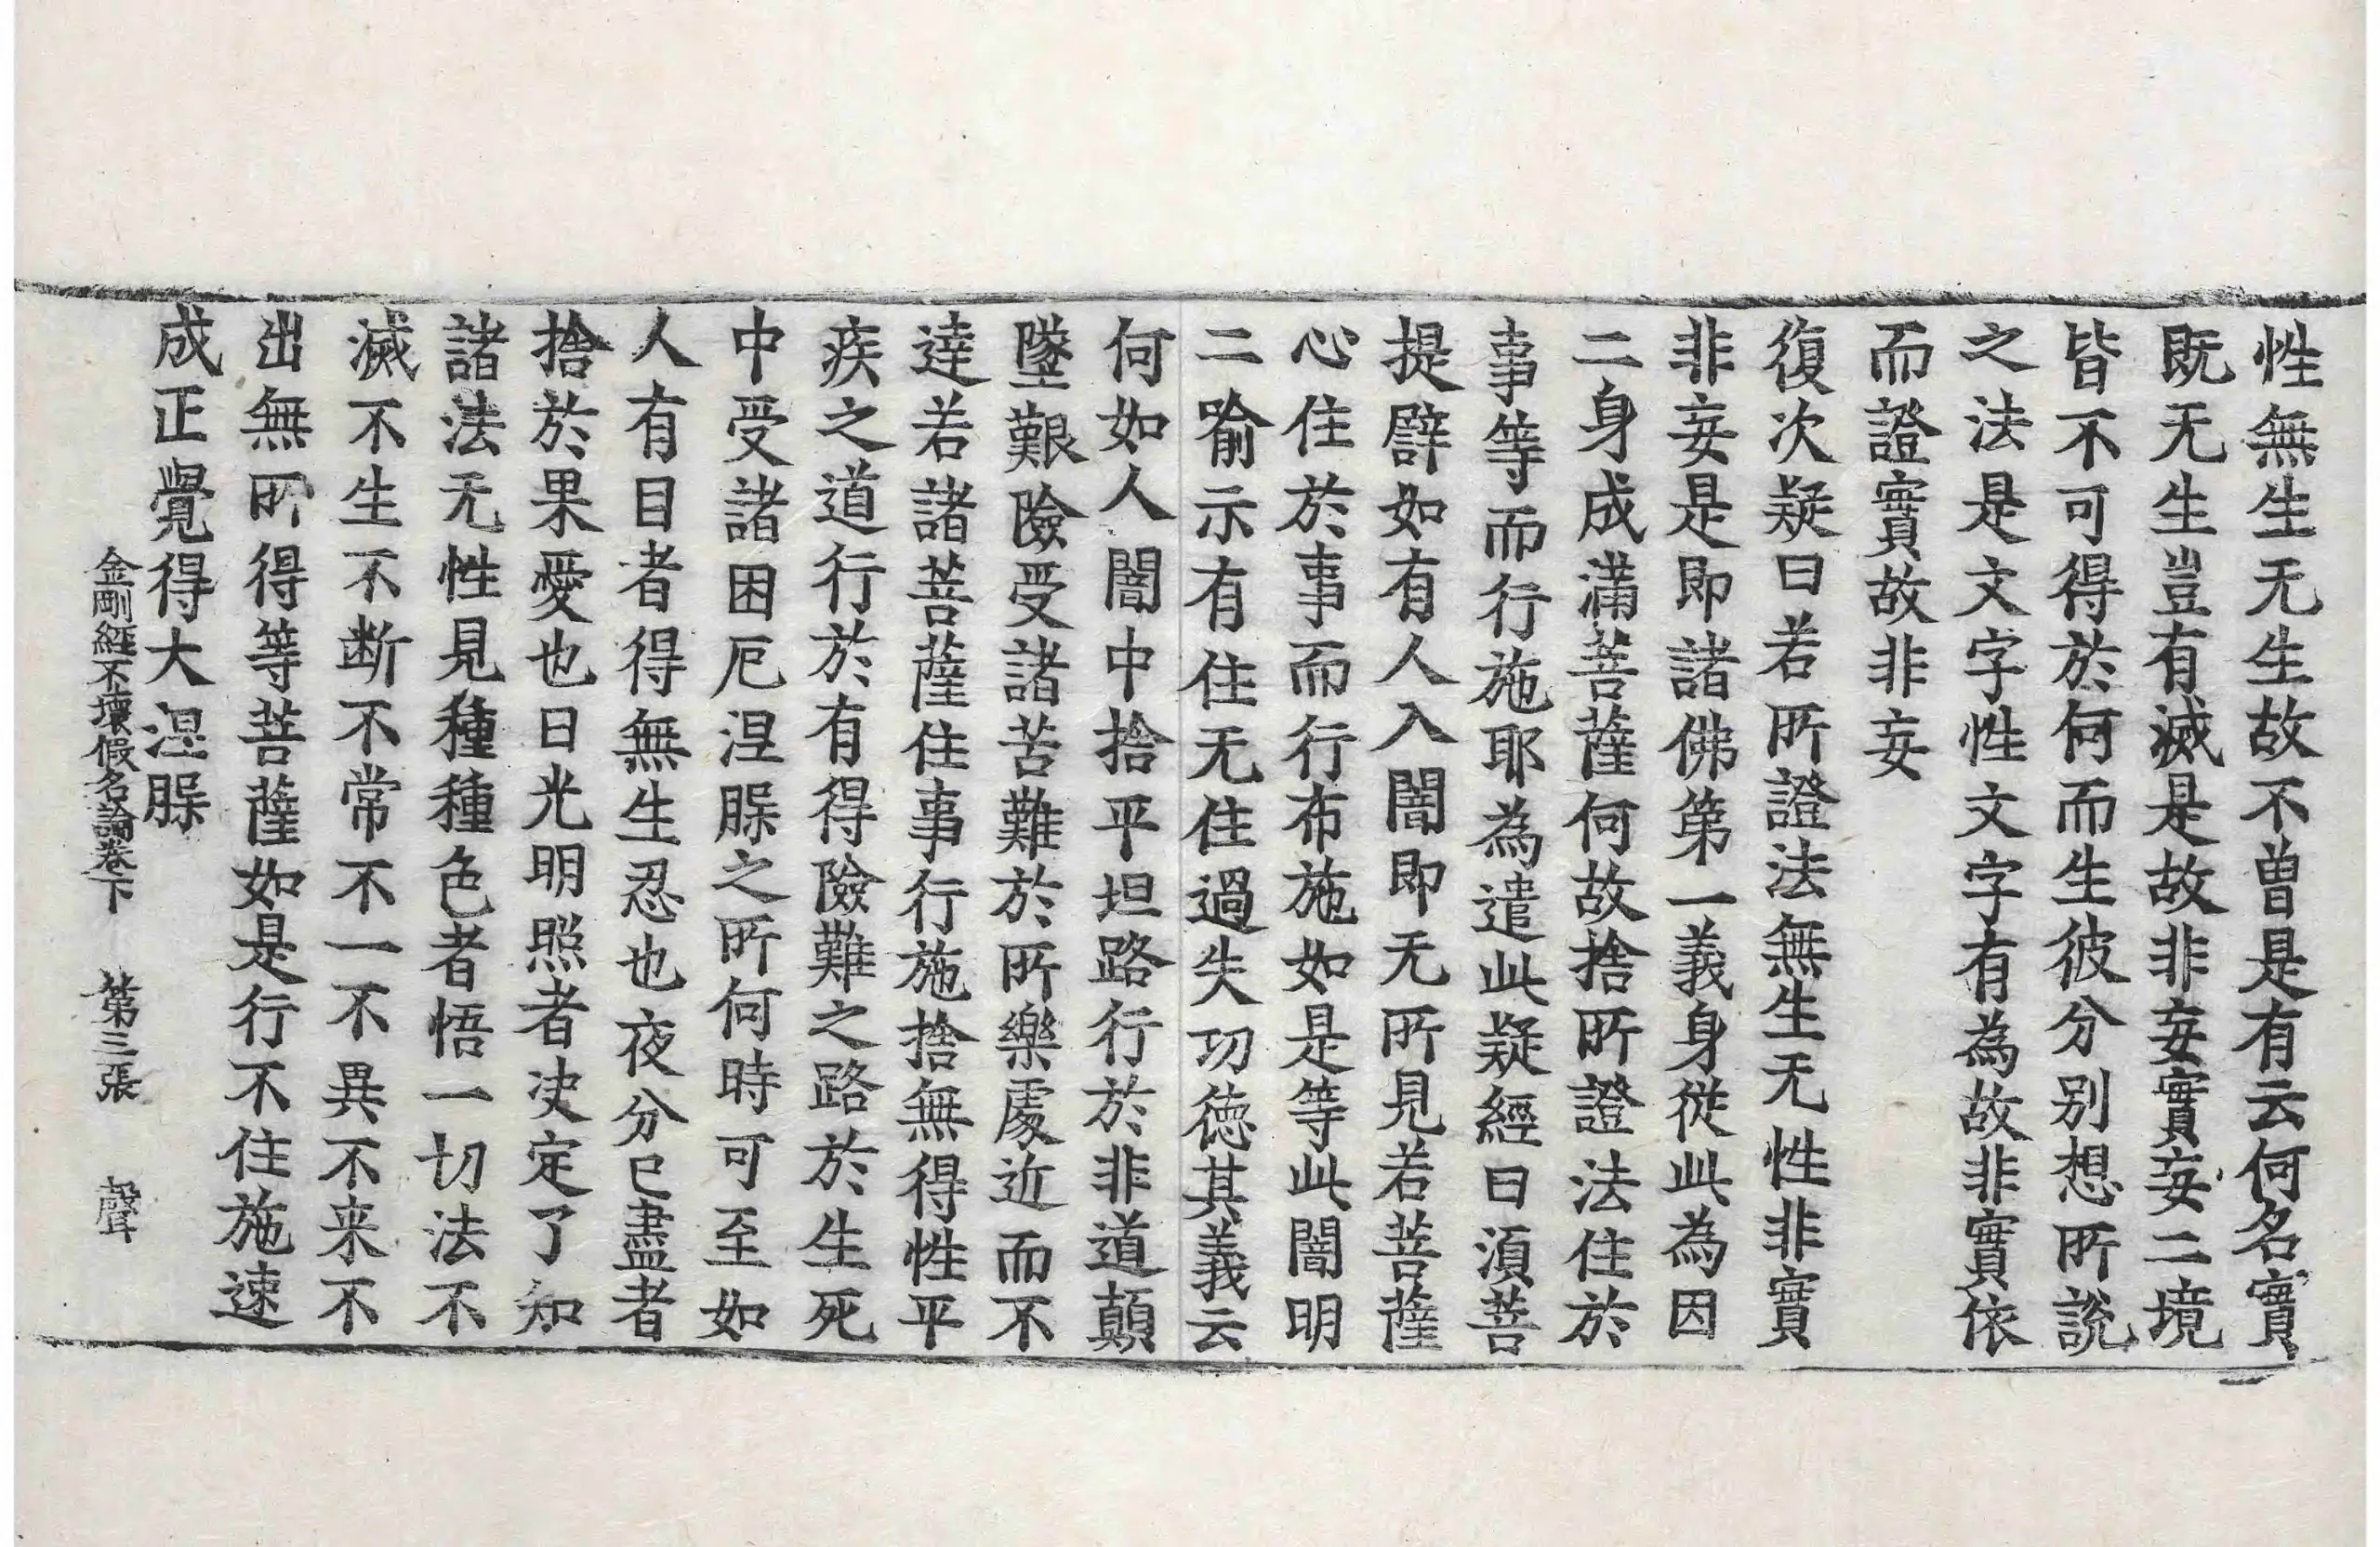 性無生无生故不曾是有云何名實
既无生豈有滅是故非妄實妄二境
皆不可得於何而生彼分别想所說
之法是文字性文字有為故非實依
而證實故非妄
復次疑曰若所證法無生无性非實
非妄是即諸佛第一義身從此為因
二身成滿菩薩何故捨所證法住於
事等而行施耶為遣此疑經曰湏菩
提譬如有人入闇即无所見若菩薩
心住於事而行布施如是等此闇明
二喻示有住无住過失功德其義云
何如人闇中捨平坦路行於非道顛
墜艱險受諸苦難於所樂處近而不
達若諸菩薩住事行施捨無得性平
疾之道行於有得險難之路於生死
中受諸困厄涅槃之所何時可至如
人有目者得無生忍也夜分已盡者
捨於果愛也日光明照者决定了知
諸法无性見種種色者悟一切法不
滅不生不断不常不一不異不来不
出無所得等菩薩如是行不住施速
成正覺得大涅槃
金剛經不壞假名論卷下 第三張 聲